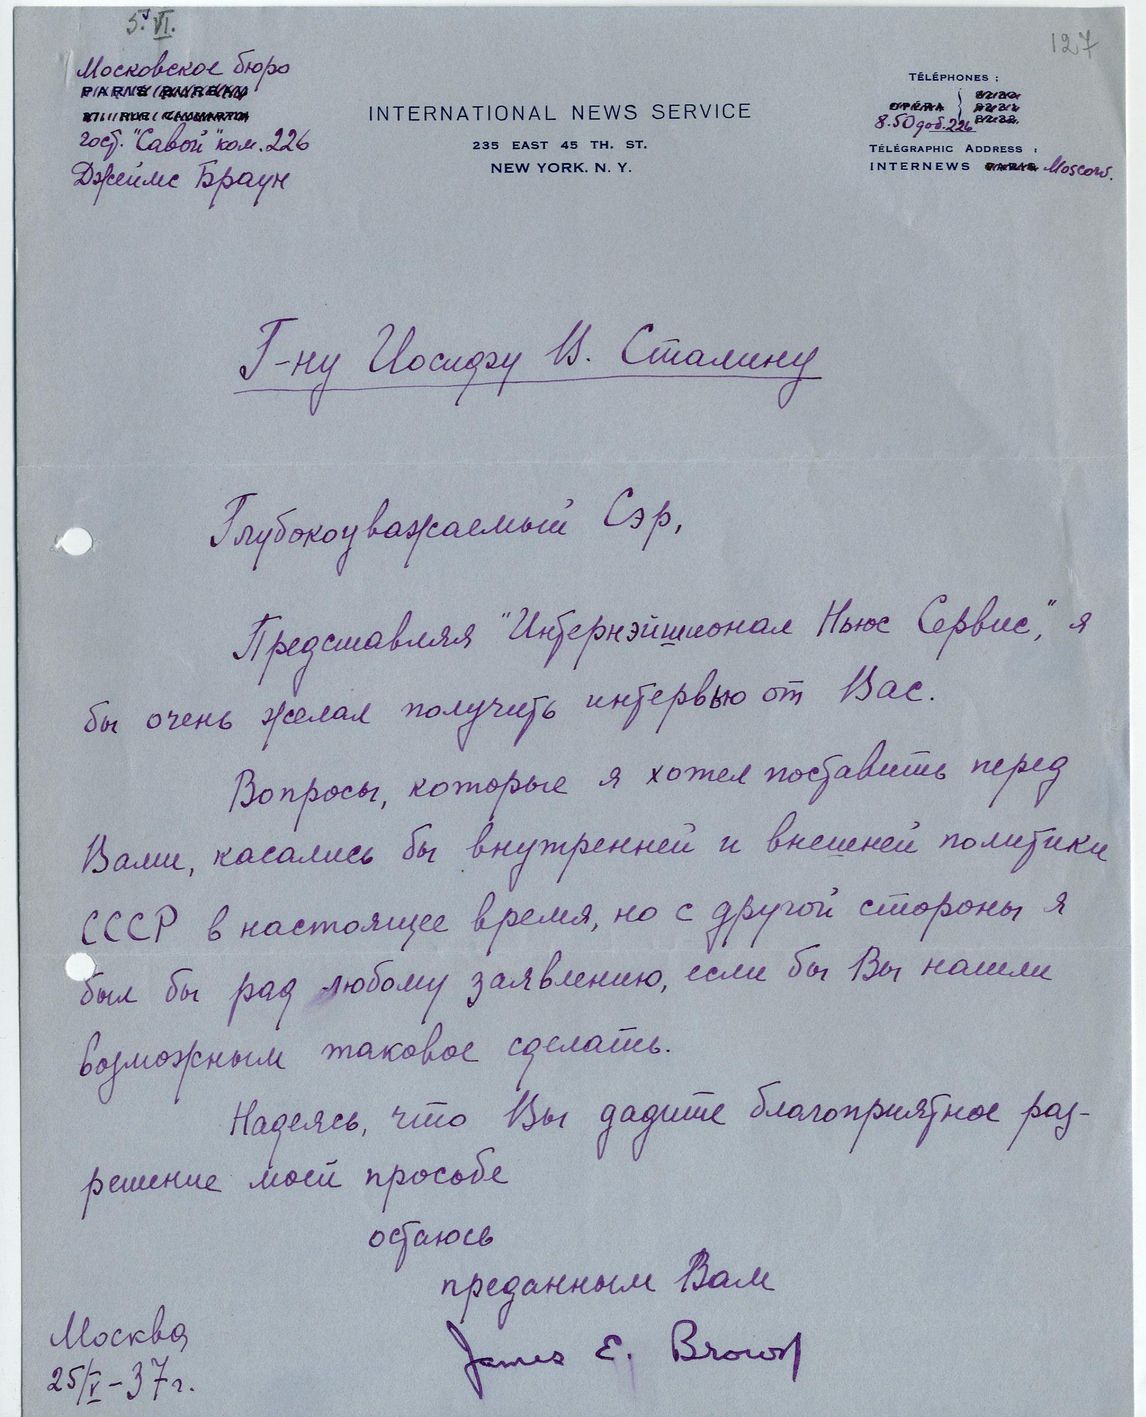 5.VI.
127
Московское бюро
PARIS BUREAU
гост. "Савой" ком. 226
Джеймс Браун
INTERNATIONAL NEWS SERVICE
235 EAST 45 TH. ST.
NEW YORK. N. Y.
TÉLÉPHONES :
OPÉRA
8.50 доб. 226
TÉLÉGRAPHIC ADDRESS :
INTERNEWS PARIS Moscow.
Г-ну Иосифу В. Сталину
Глубокоуважаемый Сэр,
Представляя "Интернэйшионал Ньюс Сервис", я
бы очень желал получить интервью от Вас.
Вопросы, которые я хотел поставить перед
Вами, касались бы внутренней и внешней политики
СССР в настоящее время, но с другой стороны я
был бы рад любому заявлению, если бы Вы нашли
возможным таковое сделать.
Надеясь, что Вы дадите благоприятное раз-
решение моей просьбе
остаюсь
преданным Вам
James E. Brown
Москва
25/V-37 г.